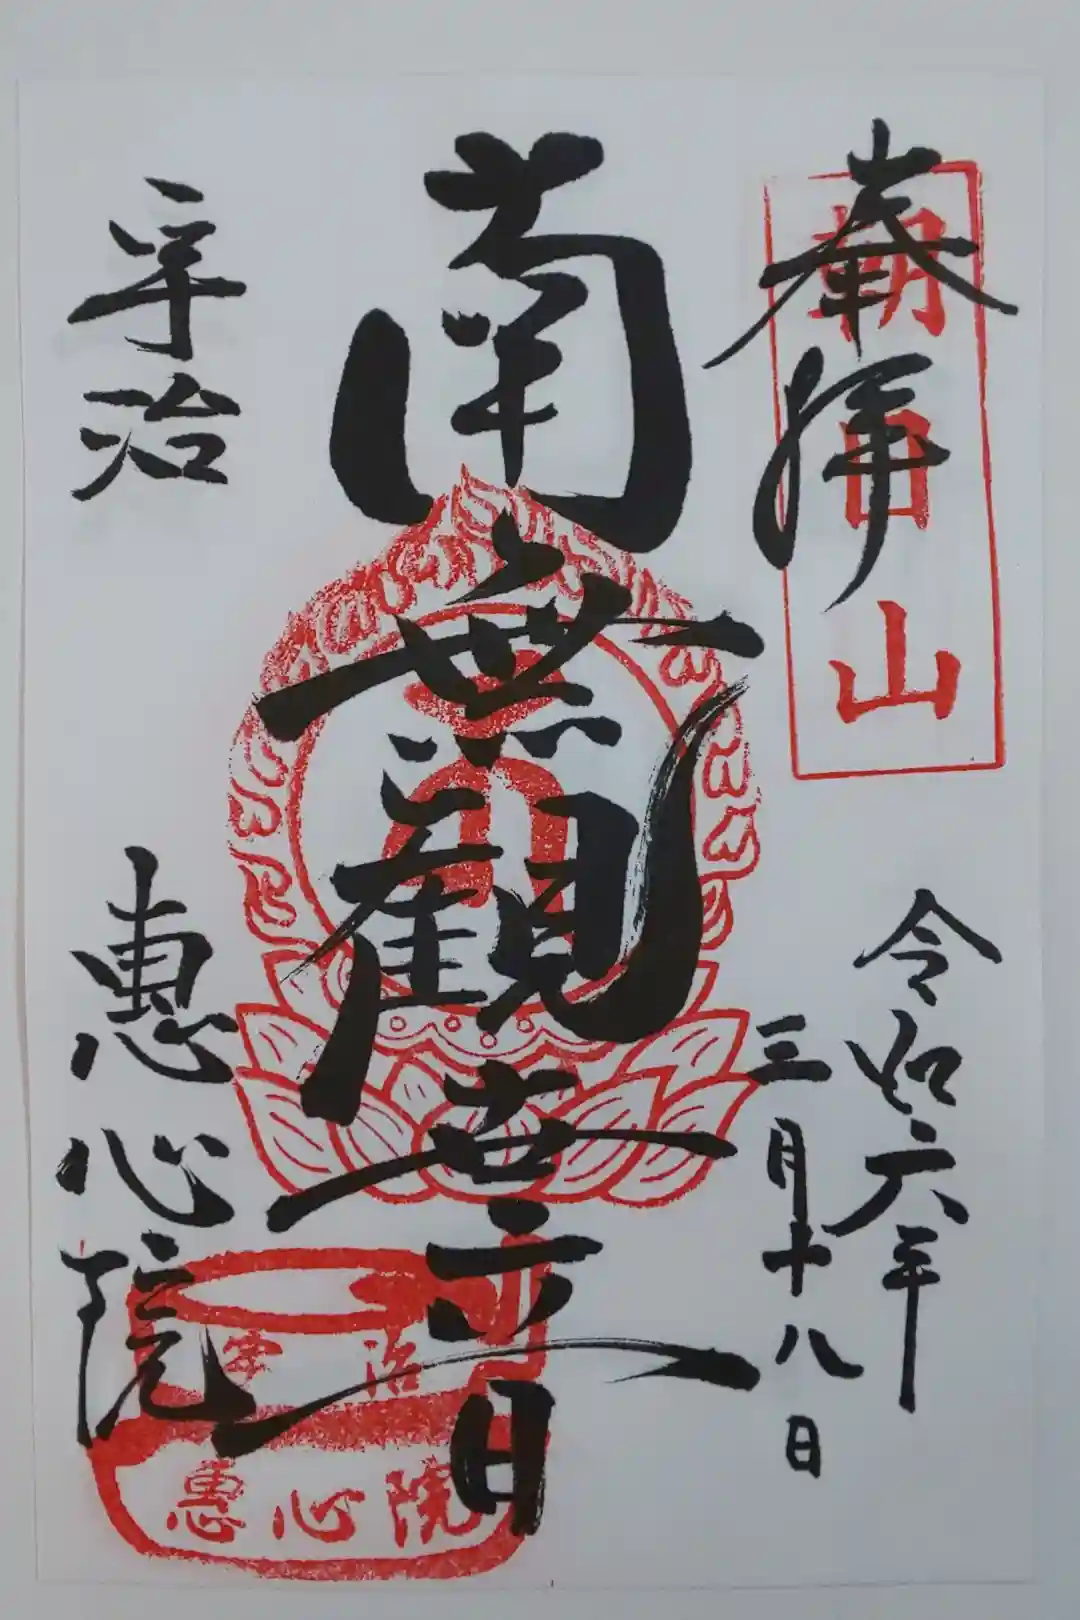 奉拝
朝日山
令和六年
三月十八日
南無觀世音
宇治
恵心院
宇治
惠心院